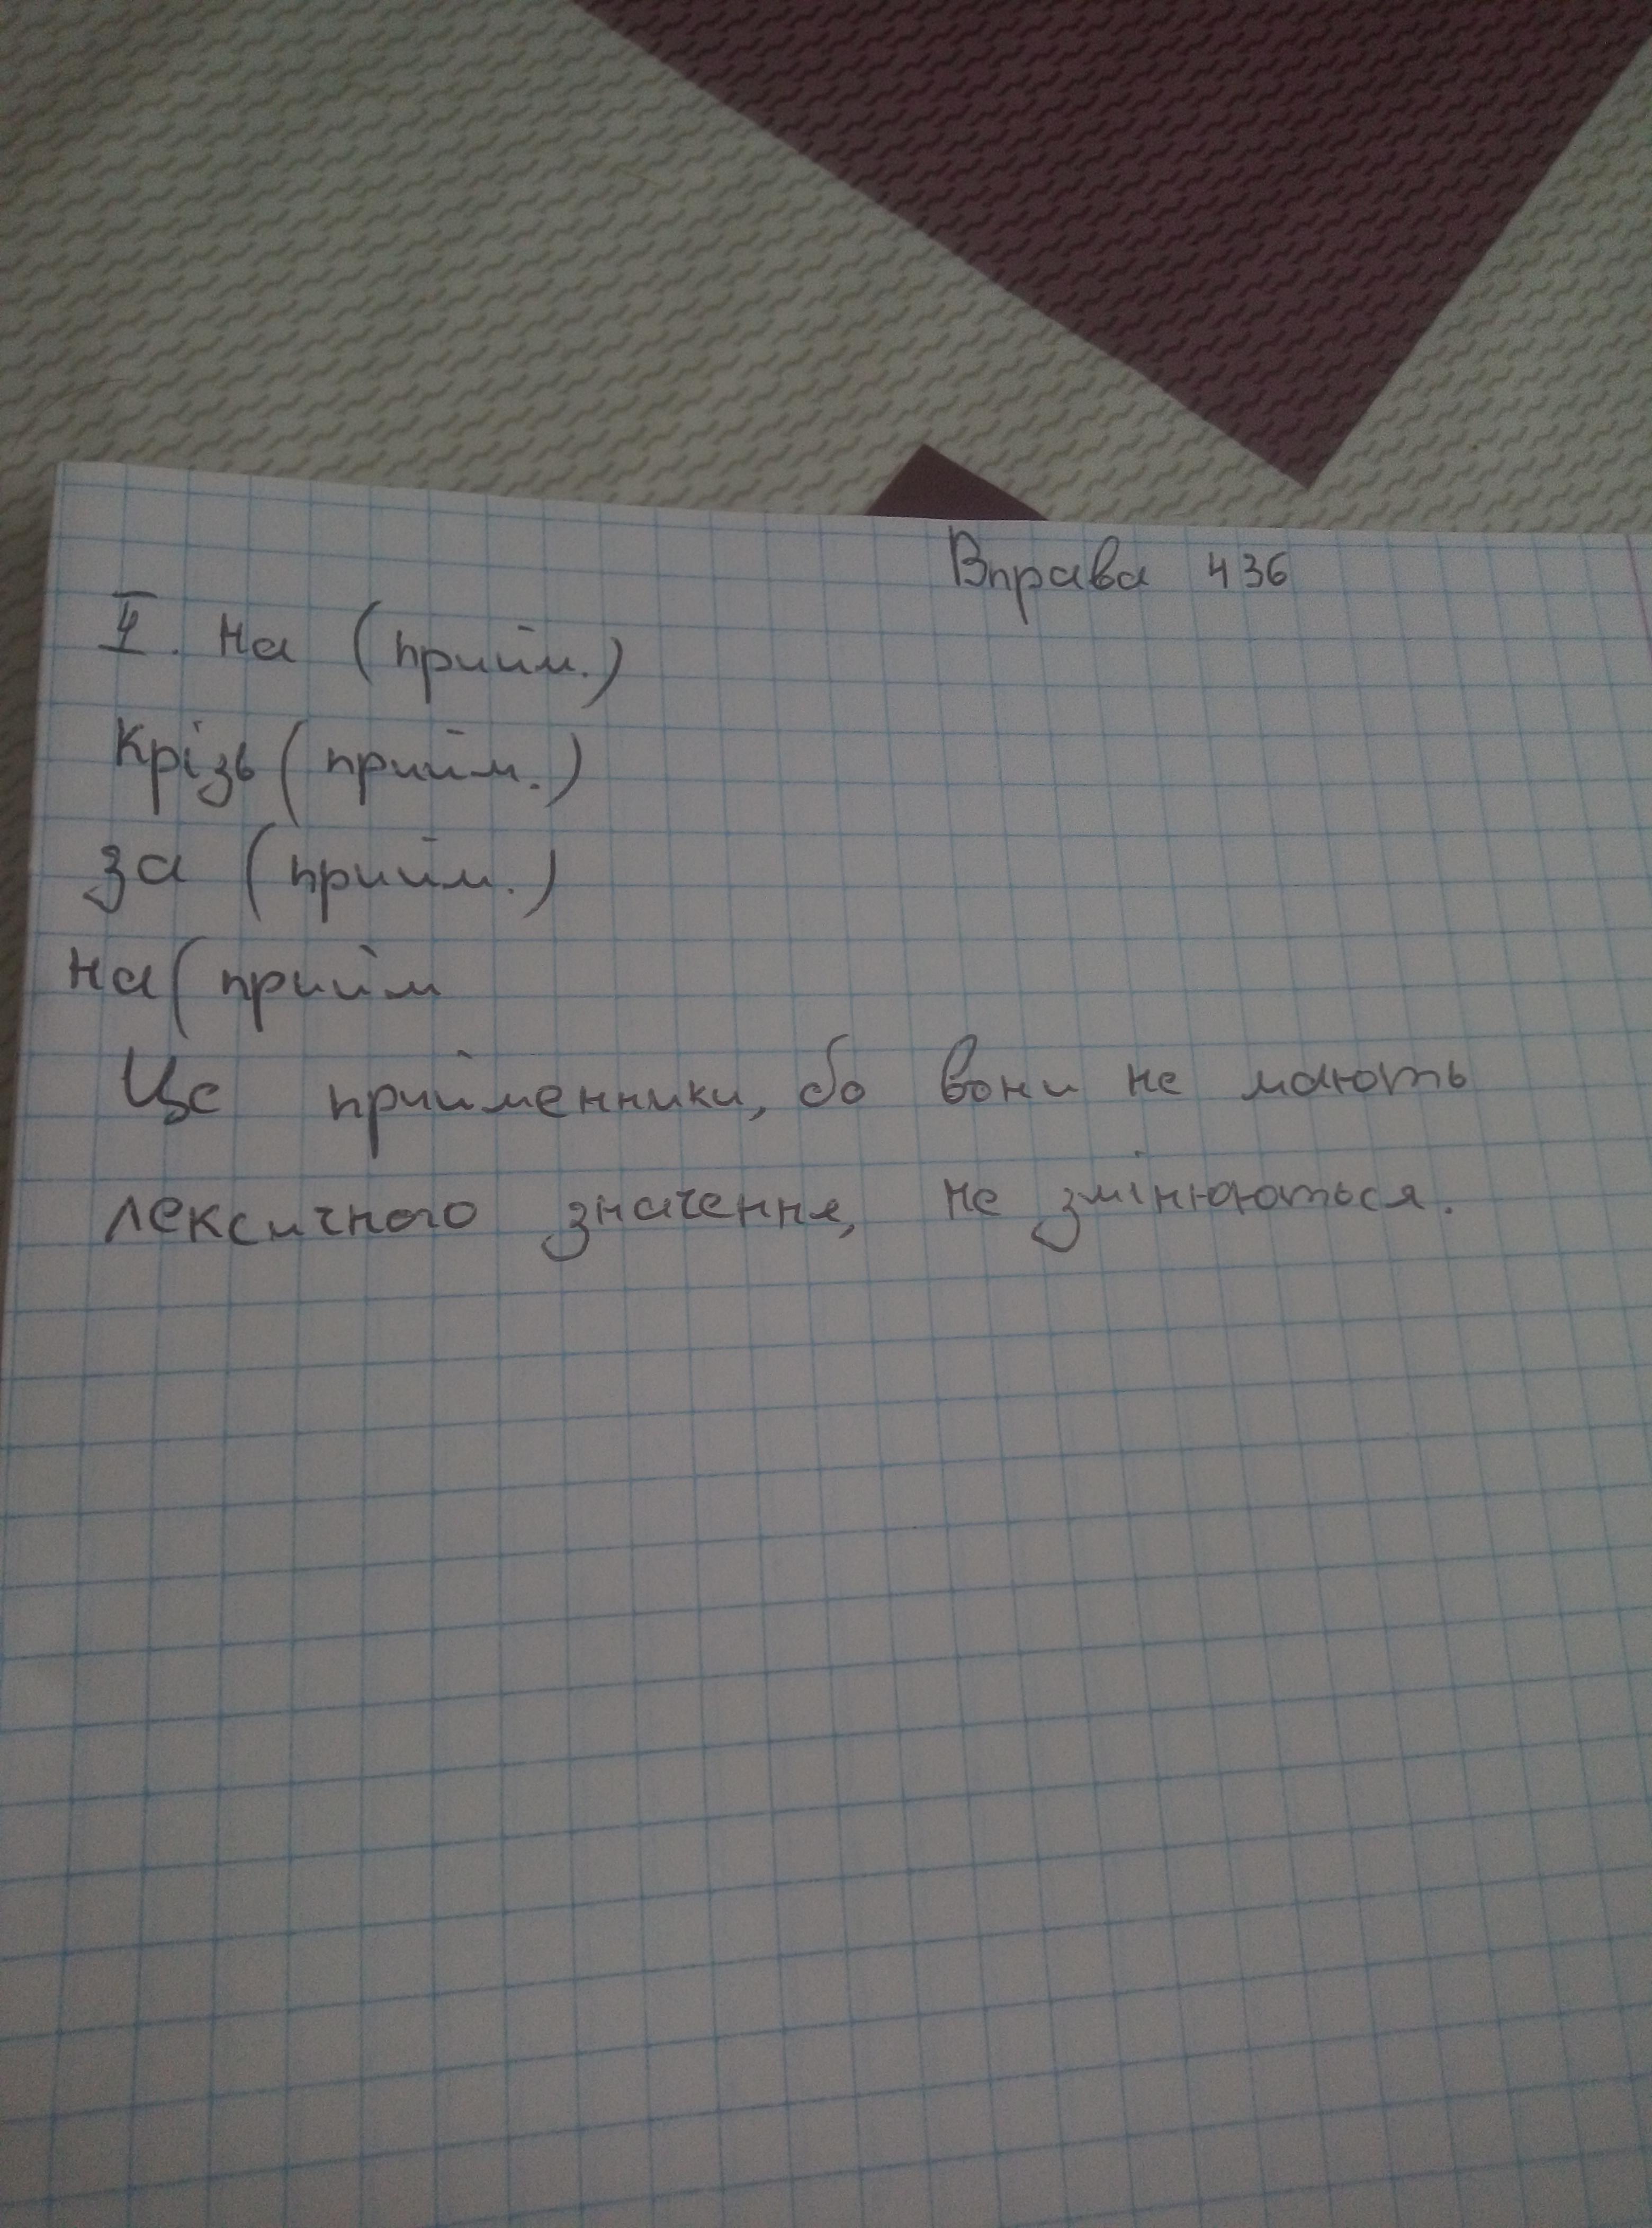 Вправа 436
І. На (прийм.)
Крізь (прийм.)
за (прийм.)
На (прийм
Це прийменники, бо вони не мають
лексичного значення, не змінюються.